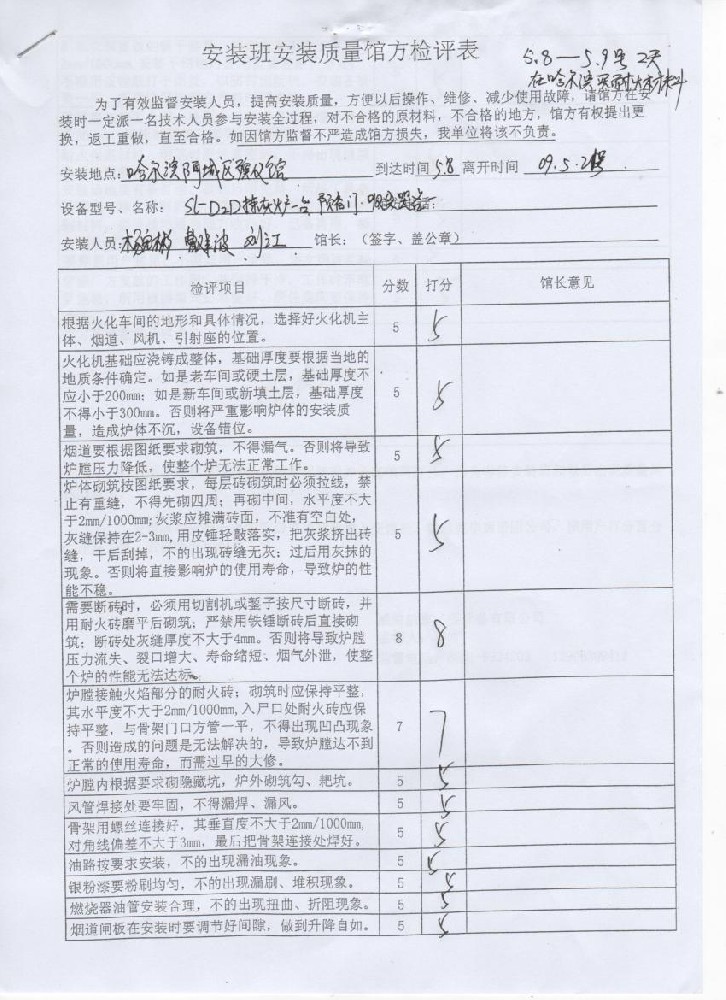 安装班安装质量馆方检评表
5.8—5.9号 2天
在哈尔滨买耐火材料
为了有效监督安装人员，提高安装质量，方便以后操作、维修、减少使用故障，请馆方在安
装时一定派一名技术人员参与安装全过程，对不合格的原材料，不合格的地方，馆方有权提出更
换，返工重做，直至合格。如因馆方监督不严造成馆方损失，我单位将该不负责。
安装地点：哈尔滨阿城区殡仪馆 到达时间 5.8 离开时间 09.5.2
设备型号、名称： SL-D2D拣灰炉一台 预备门
安装人员： 刘江 馆长：（签字、盖公章）
检评项目 分数 打分 馆长意见
根据火化车间的地形和具体情况，选择好火化机主
体、烟道、风机、引射座的位置。 5 5
火化机基础应浇铸成整体，基础厚度要根据当地的
地质条件确定。如是老车间或硬土层，基础厚度不
应小于200mm；如是新车间或新填土层，基础厚度
不得小于300mm。否则将严重影响炉体的安装质
量，造成炉体不沉，设备错位。 5 5
烟道要根据图纸要求砌筑，不得漏气。否则将导致
炉膛压力降低，使整个炉无法正常工作。 5 5
炉体砌筑按图纸要求，每层砖砌筑时必须拉线，禁
止有重缝，不得先砌四周；再砌中间，水平度不大
于2mm/1000mm;灰浆应摊满砖面，不准有空白处，
灰缝保持在2-3mm,用皮锤轻敲落实，把灰浆挤出砖
缝，干后刮掉，不的出现砖缝无灰；过后用灰抹的
现象。否则将直接影响炉的使用寿命，导致炉的性
能不稳。 5 5
需要断砖时，必须用切割机或錾子按尺寸断砖，并
用耐火砖磨平后砌筑；严禁用铁锤断砖后直接砌
筑；断砖处灰缝厚度不大于4mm。否则将导致炉膛
压力流失、裂口增大、寿命缩短、烟气外泄，使整
个炉的性能无法达标。 8 8
炉膛接触火焰部分的耐火砖；砌筑时应保持平整，
其水平度不大于2mm/1000mm,入尸口处耐火砖应保
持平整，与骨架门口方管一平，不得出现凹凸现象
。否则造成的问题是无法解决的，导致炉膛达不到
正常的使用寿命，而需过早的大修。 7 7
炉膛内根据要求砌隐藏坑，炉外砌筑勾、耙坑。 5 5
风管焊接处要牢固，不得漏焊、漏风。 5 5
骨架用螺丝连接好，其垂直度不大于2mm/1000mm,
对角线偏差不大于3mm，最后把骨架连接处焊好。 5 5
油路按要求安装，不的出现漏油现象。 5 5
银粉漆要粉刷均匀，不的出现漏刷、堆积现象。 5 5
燃烧器油管安装合理，不的出现扭曲、折阻现象。 5 5
烟道闸板在安装时要调节好间隙，做到升降自如。 5 5